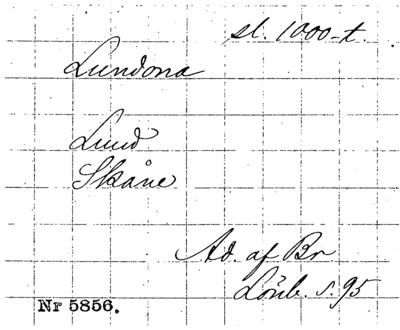 sl. 1000-t.
Lundona
Lund
Skåne
Ad. af Br
Lönb. s. 95
Nr 5856.